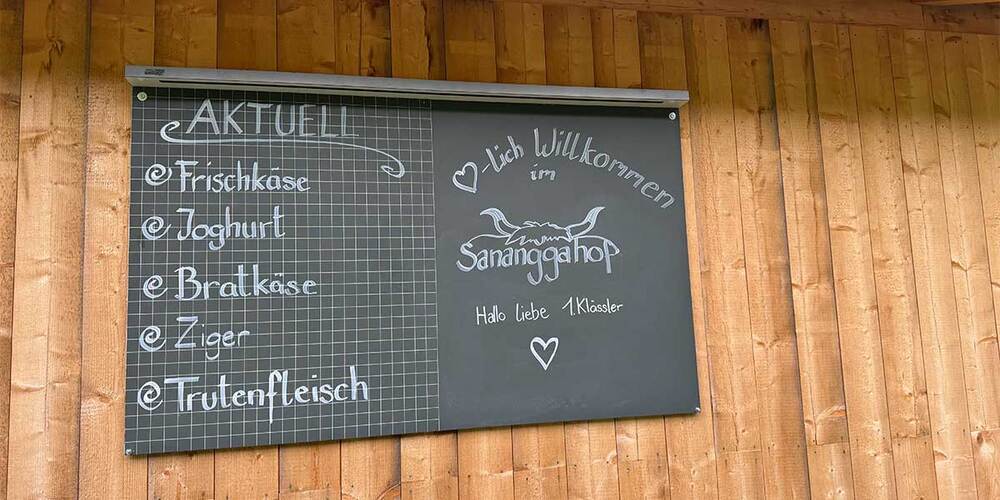 AKTUELL
Frischkäse
Joghurt
Bratkäse
Ziger
Trutenfleisch
♡-lich Willkommen
im
Sananggahof
Hallo liebe 1.Klässler
♡